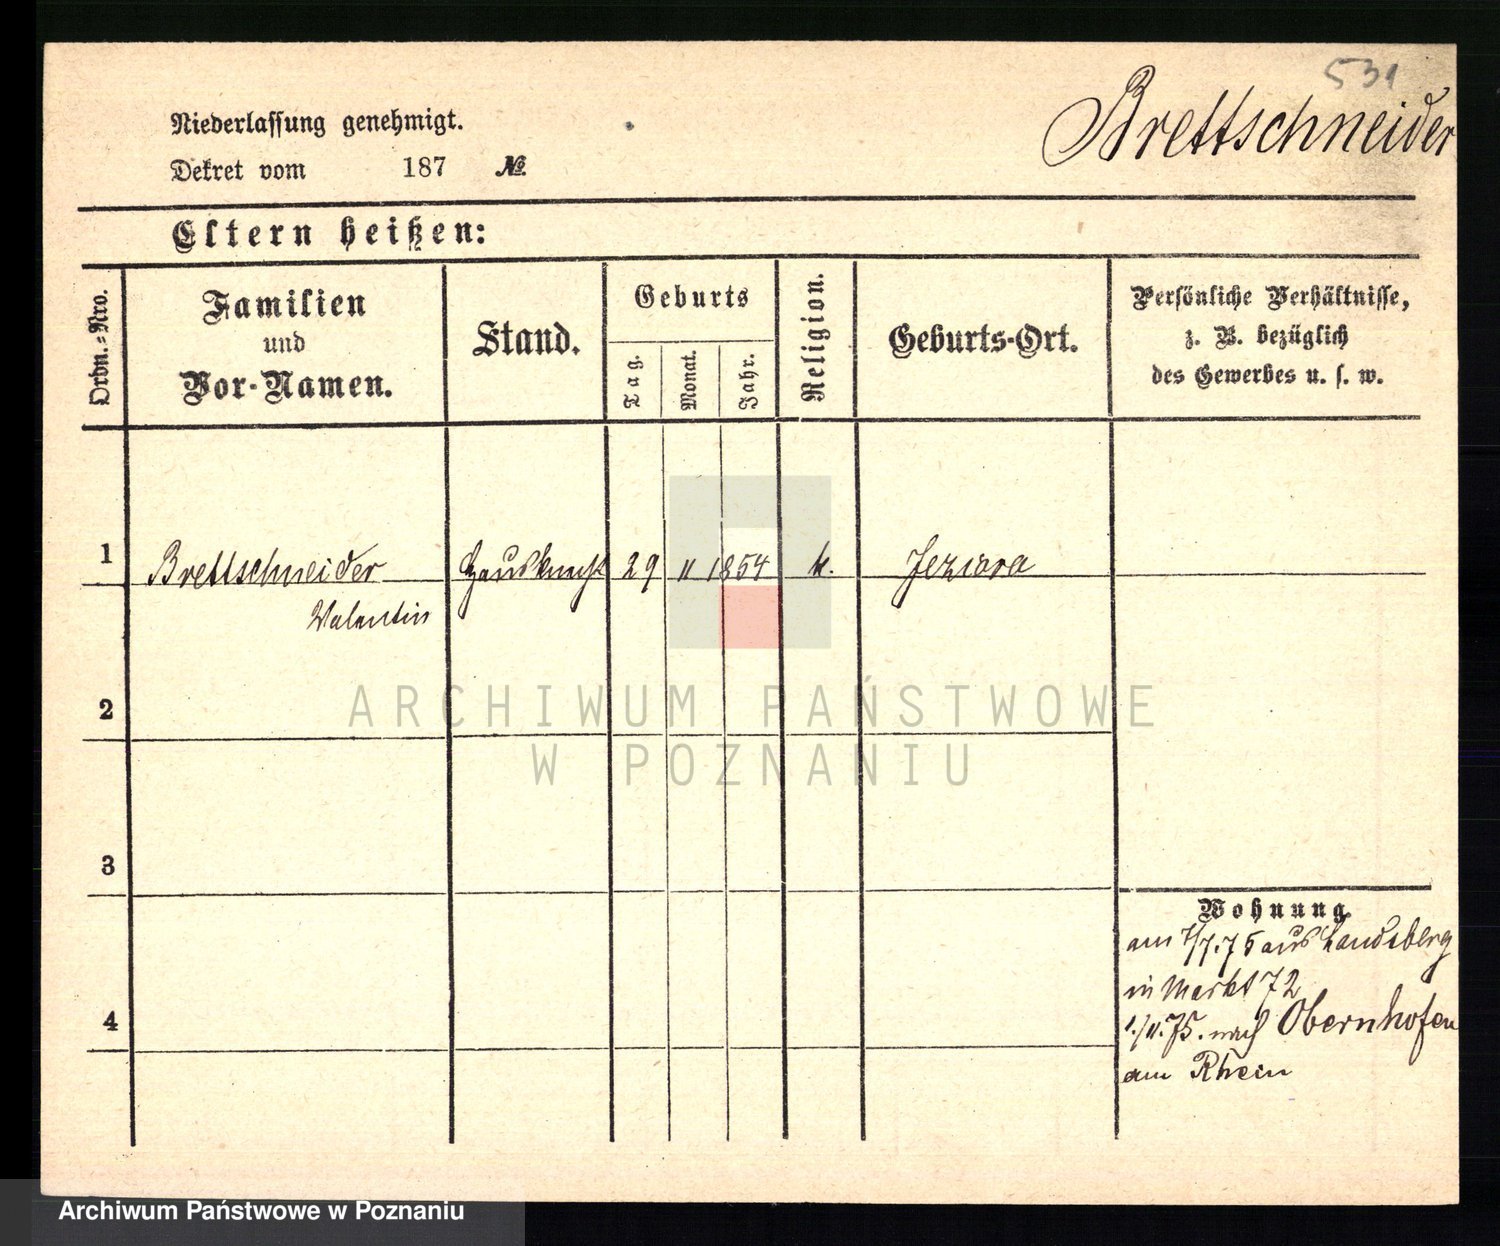 531
Brettschneider
Niederlassung genehmigt.
Dekret vom 187 №
Eltern heißen:
Ordn.=Nro.
Familien
und
Vor-Namen.
Stand.
Geburts
Tag.
Monat.
Jahr.
Religion.
Geburts-Ort.
Persönliche Verhältnisse,
z. B. bezüglich
des Gewerbes u. s. w.
1 Brettschneider Hausknecht 29 11 1854 k. Jeziora
Valentin
2
3
4
Wohnung.
am 7/7.75 aus Landsberg
in Markt 72
1./11.75. nach Obernhofen
am Rhein
ARCHIWUM PAŃSTWOWE
W POZNANIU
Archiwum Państwowe w Poznaniu